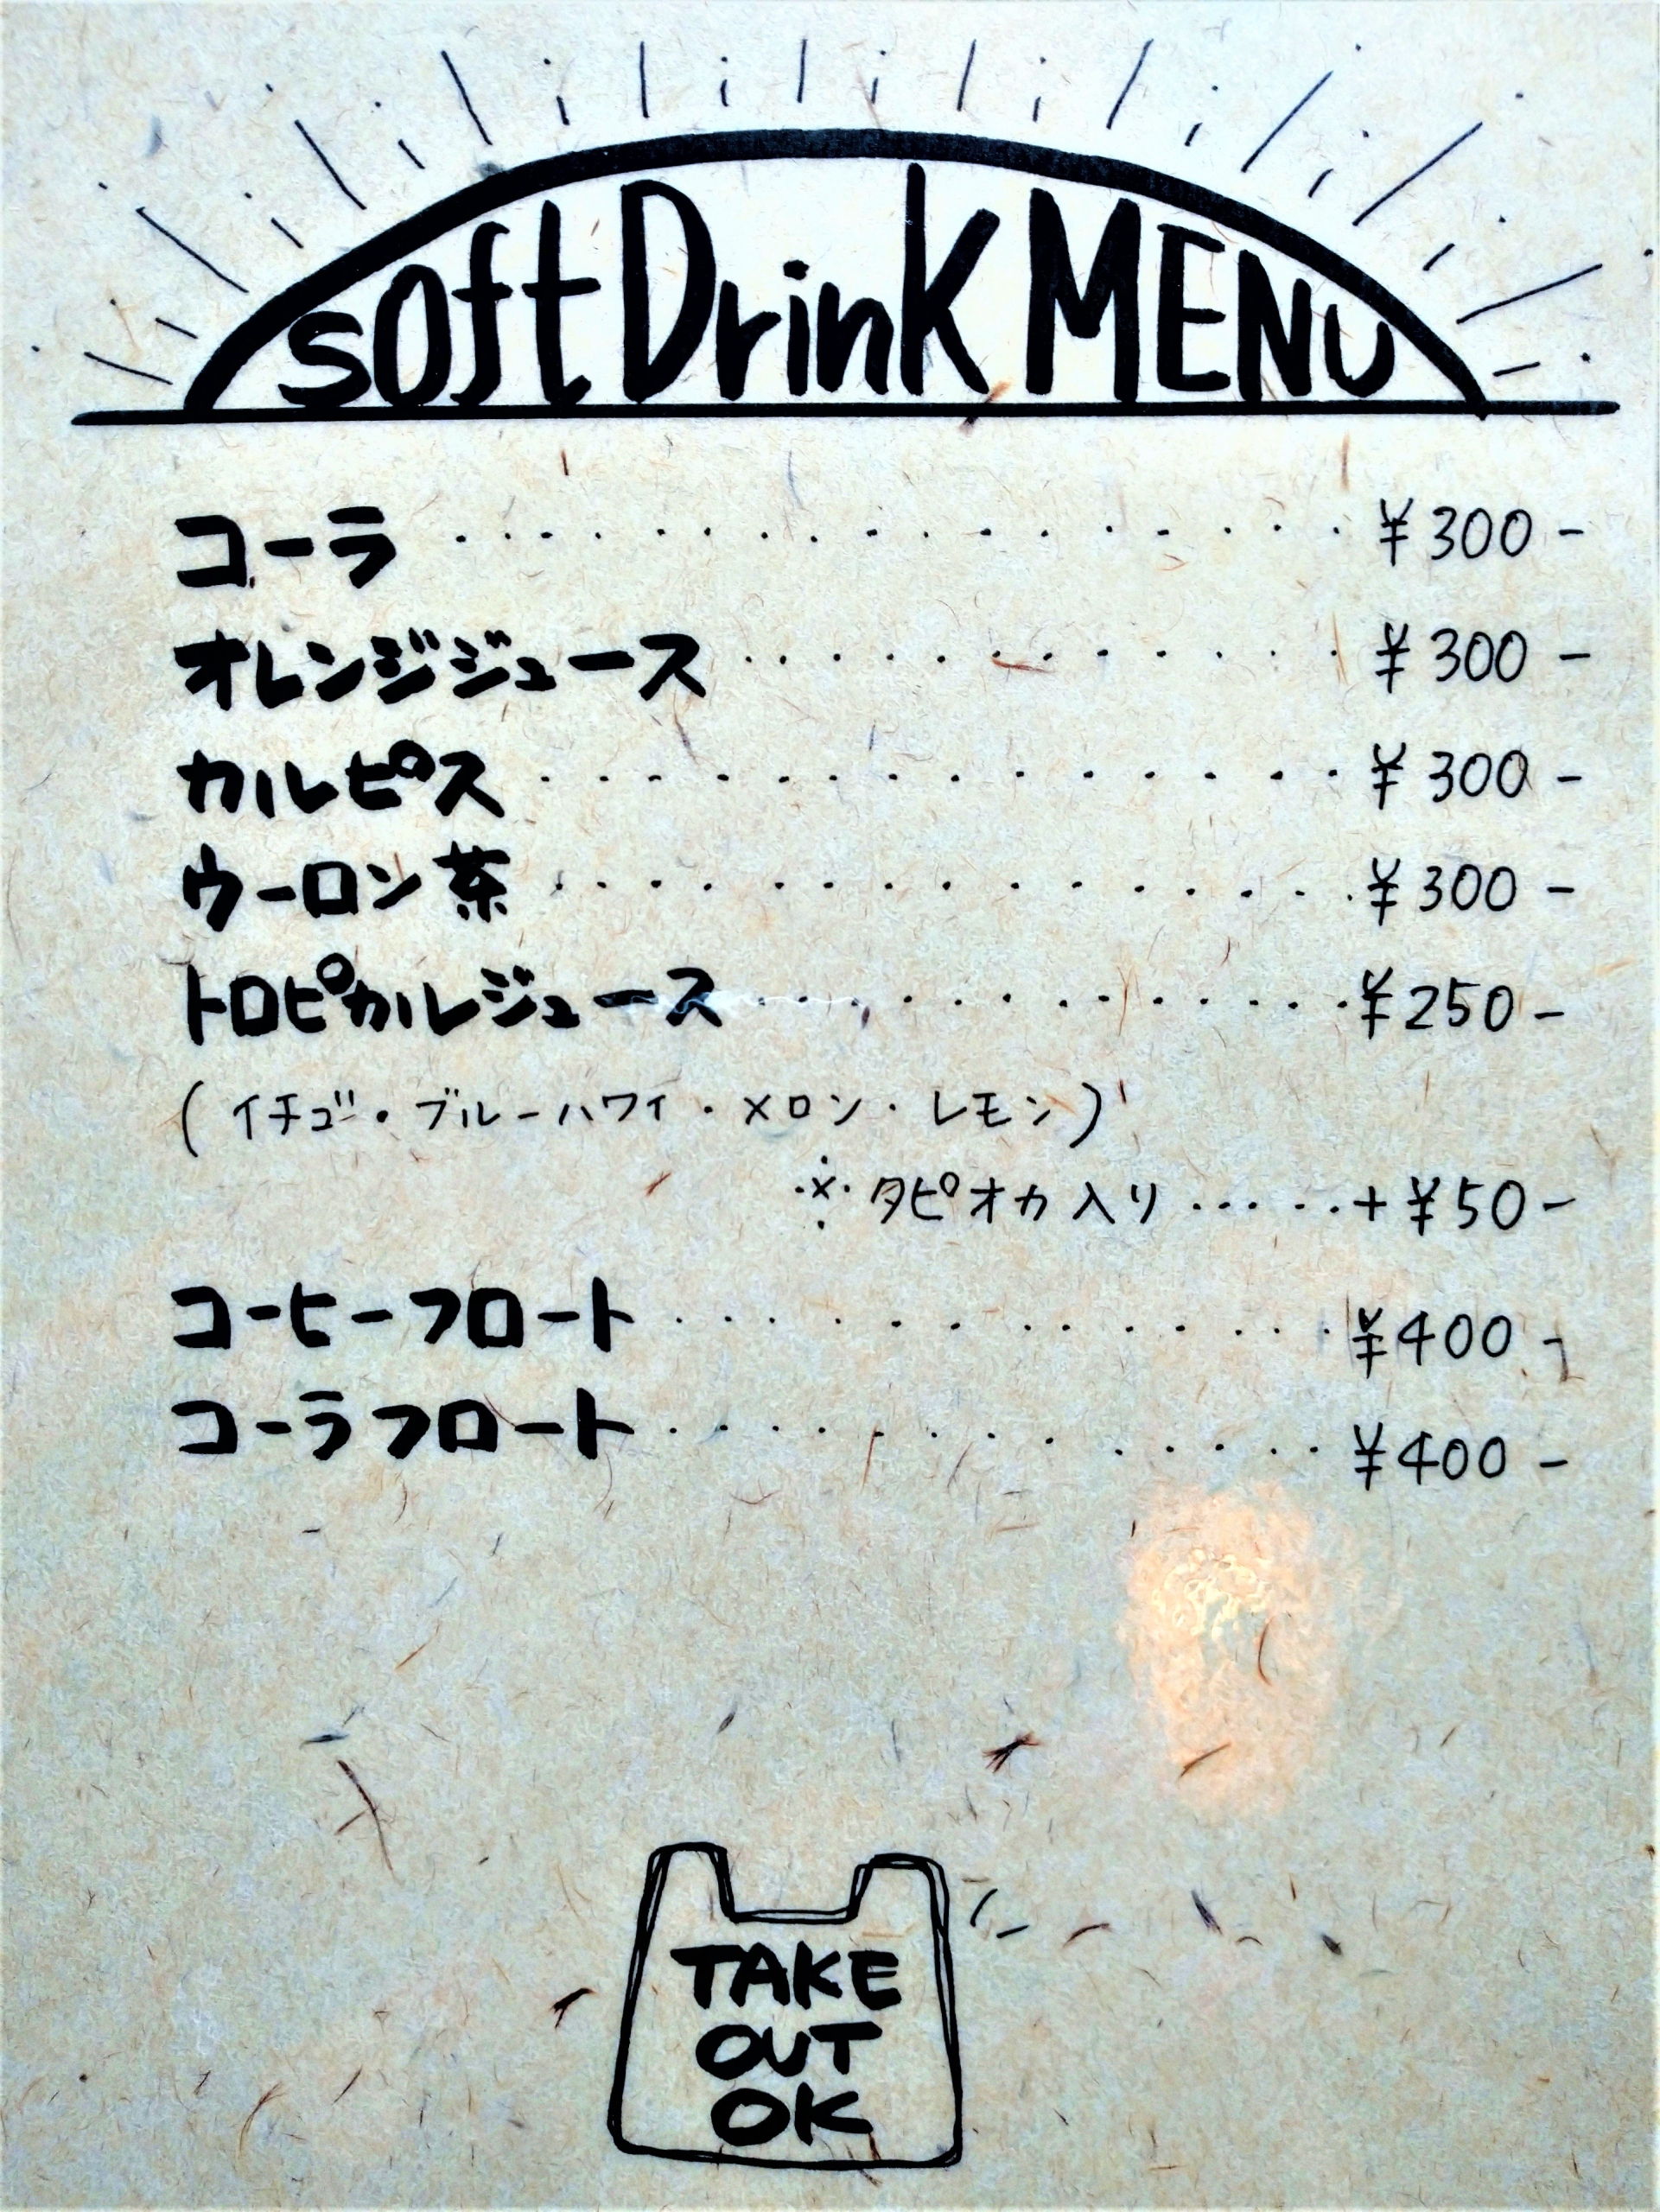 soft Drink MENU
コーラ ・・・・・・・・・・・・・・・ ¥300-
オレンジジュース ・・・・・・・・・・・ ¥300-
カルピス ・・・・・・・・・・・・・ ¥300-
ウーロン茶 ・・・・・・・・・・・・・・ ¥300-
トロピカルジュース ・・・・・・・・・・ ¥250-
(イチゴ・ブルーハワイ・メロン・レモン)
※タピオカ入り ・・・・・ +¥50-
コーヒーフロート ・・・・・・・・・・・・ ¥400-
コーラフロート ・・・・・・・・・・・・・ ¥400-
TAKE
OUT
OK